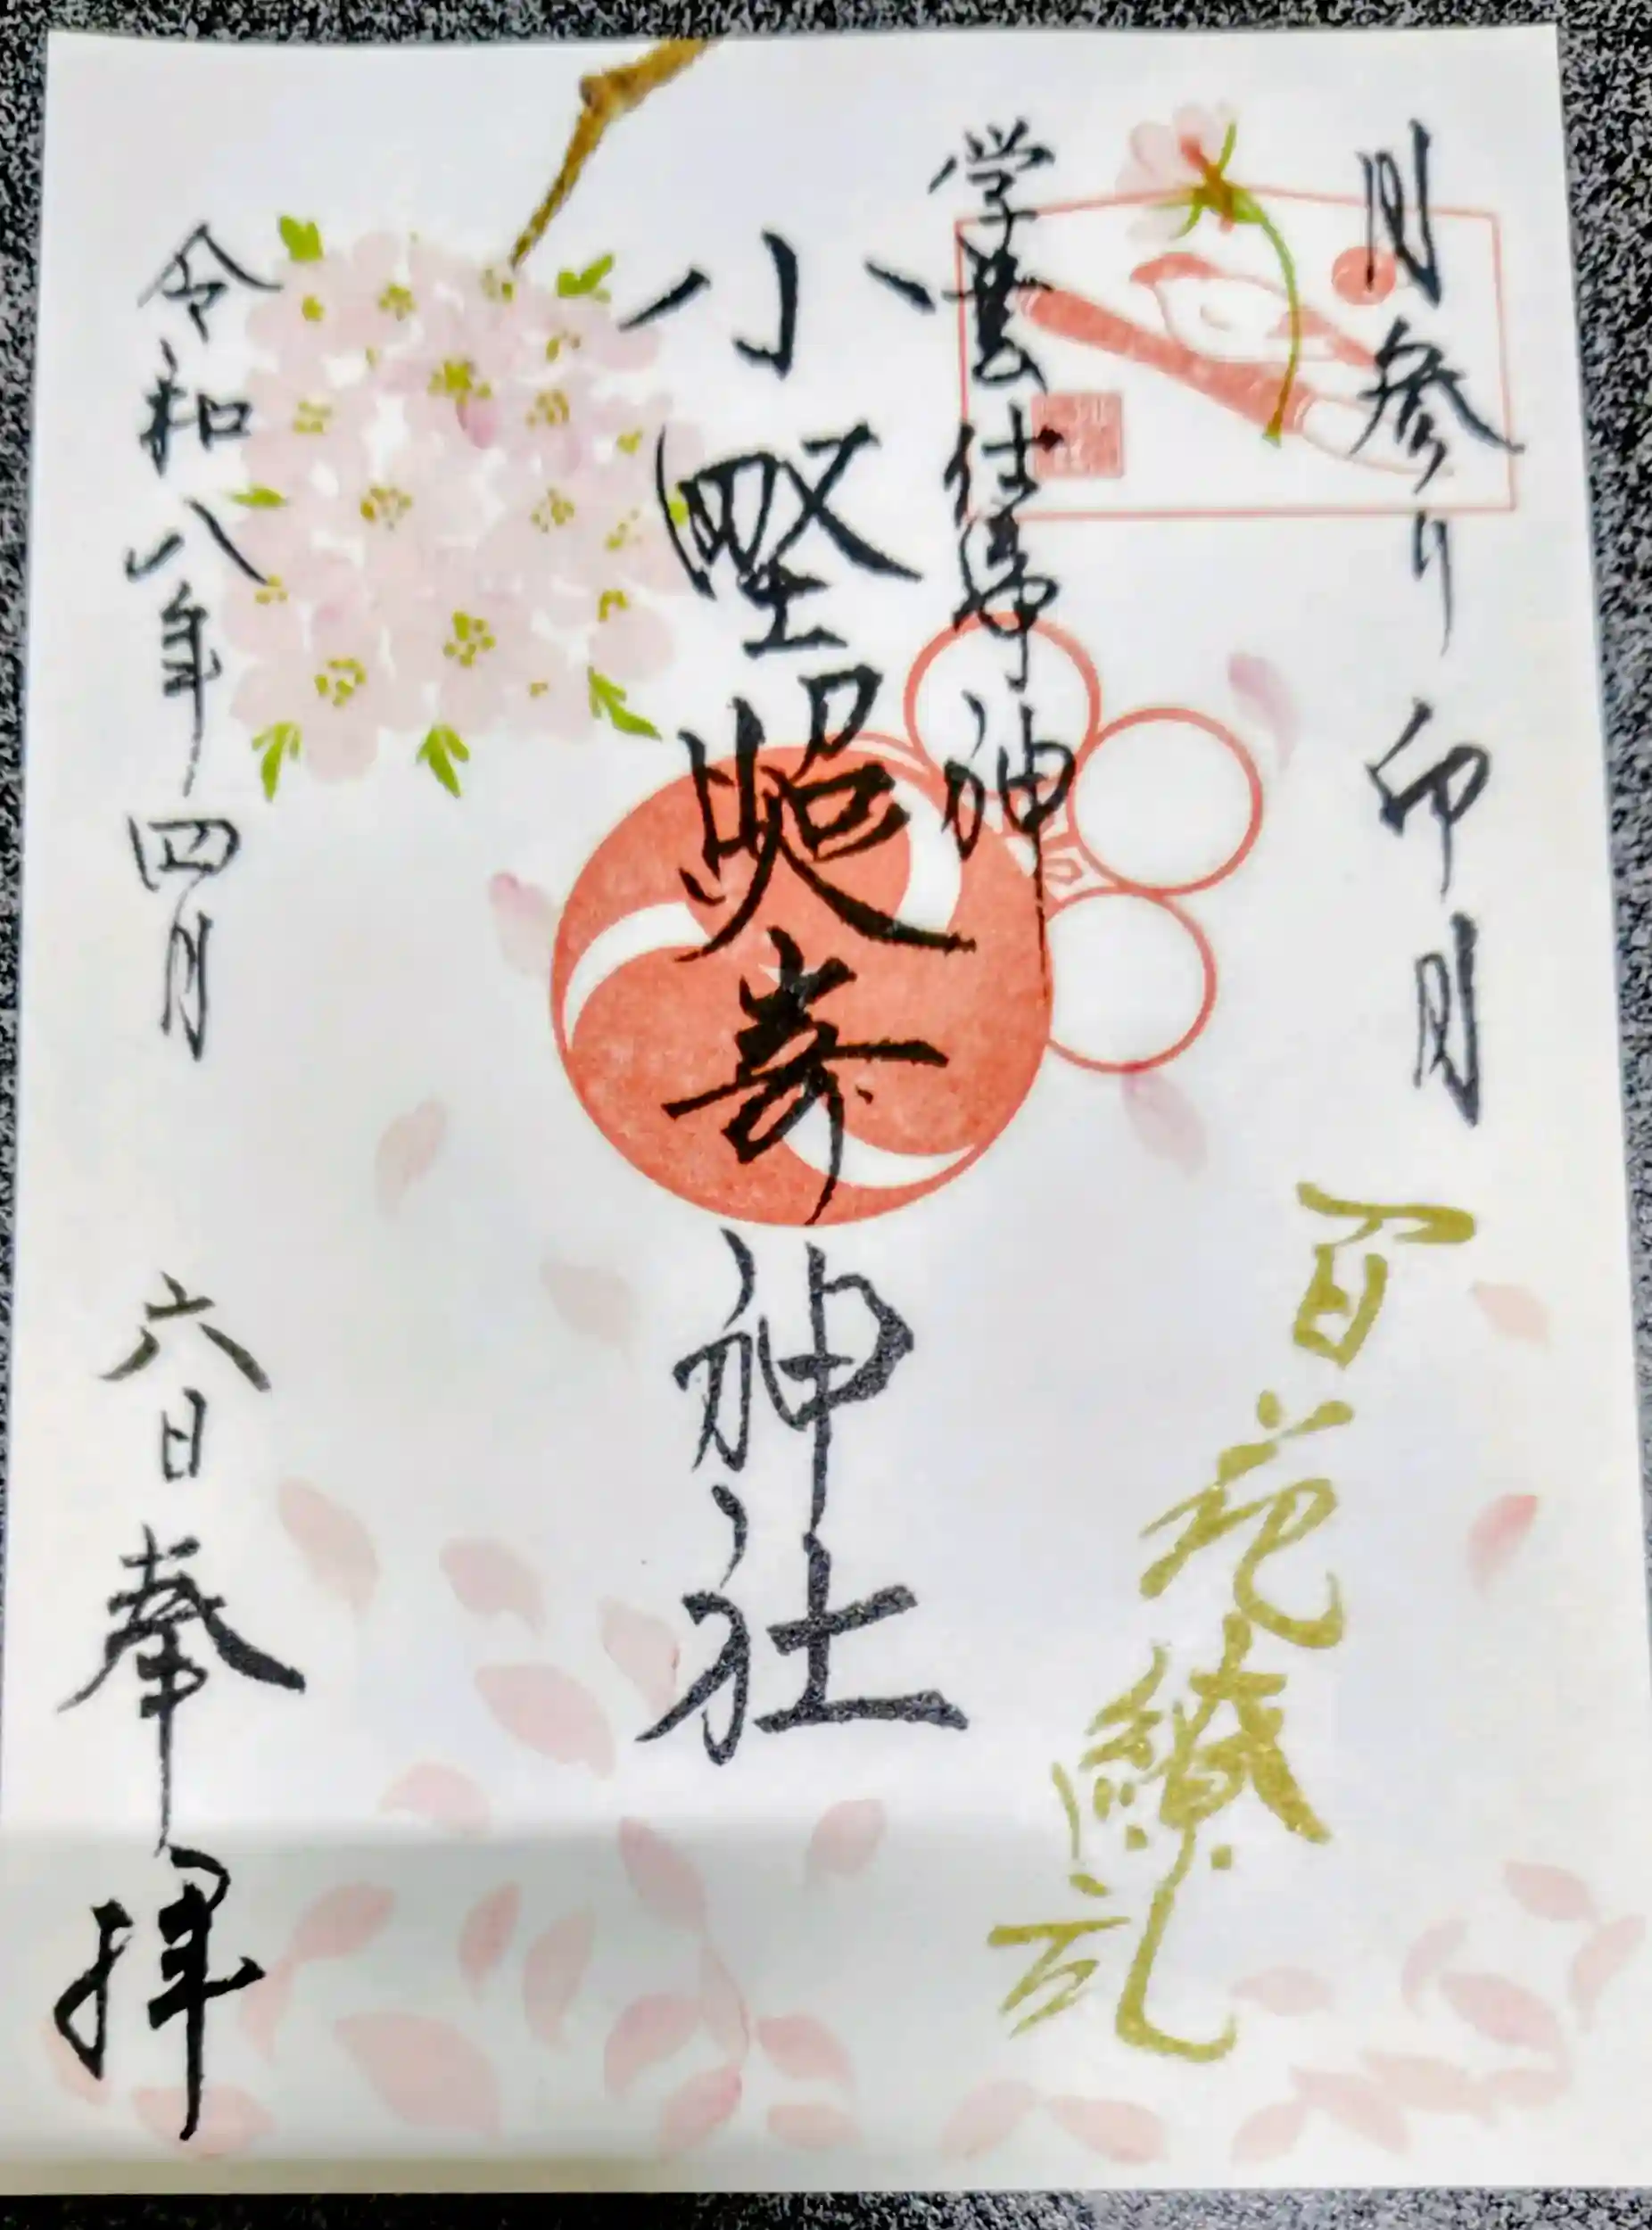 月参り 卯月
百花繚乱
学芸 仕事神
小野照崎神社
令和八年四月 六日
奉拝